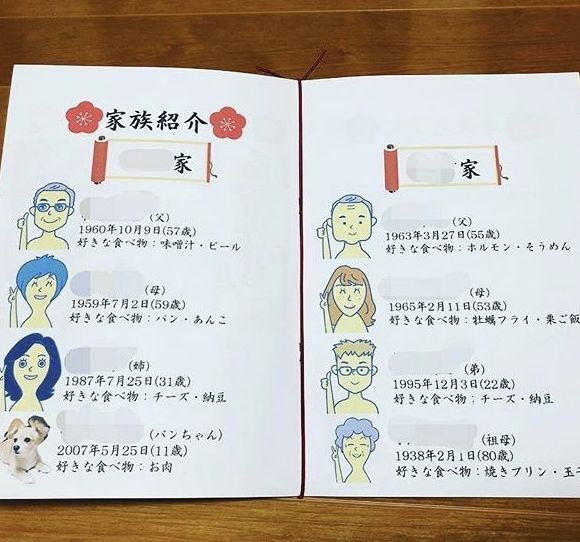 家族紹介
家
(父)
1960年10月9日(57歳)
好きな食べ物：味噌汁・ビール
(母)
1959年7月2日(59歳)
好きな食べ物：パン・あんこ
(姉)
1987年7月25日(31歳)
好きな食べ物：チーズ・納豆
(パンちゃん)
2007年5月25日(11歳)
好きな食べ物：お肉
家
(父)
1963年3月27日(55歳)
好きな食べ物：ホルモン・そうめん
(母)
1965年2月11日(53歳)
好きな食べ物：牡蠣フライ・栗ご飯
(弟)
1995年12月3日(22歳)
好きな食べ物：チーズ・納豆
(祖母)
1938年2月1日(80歳)
好きな食べ物：焼きプリン・玉子